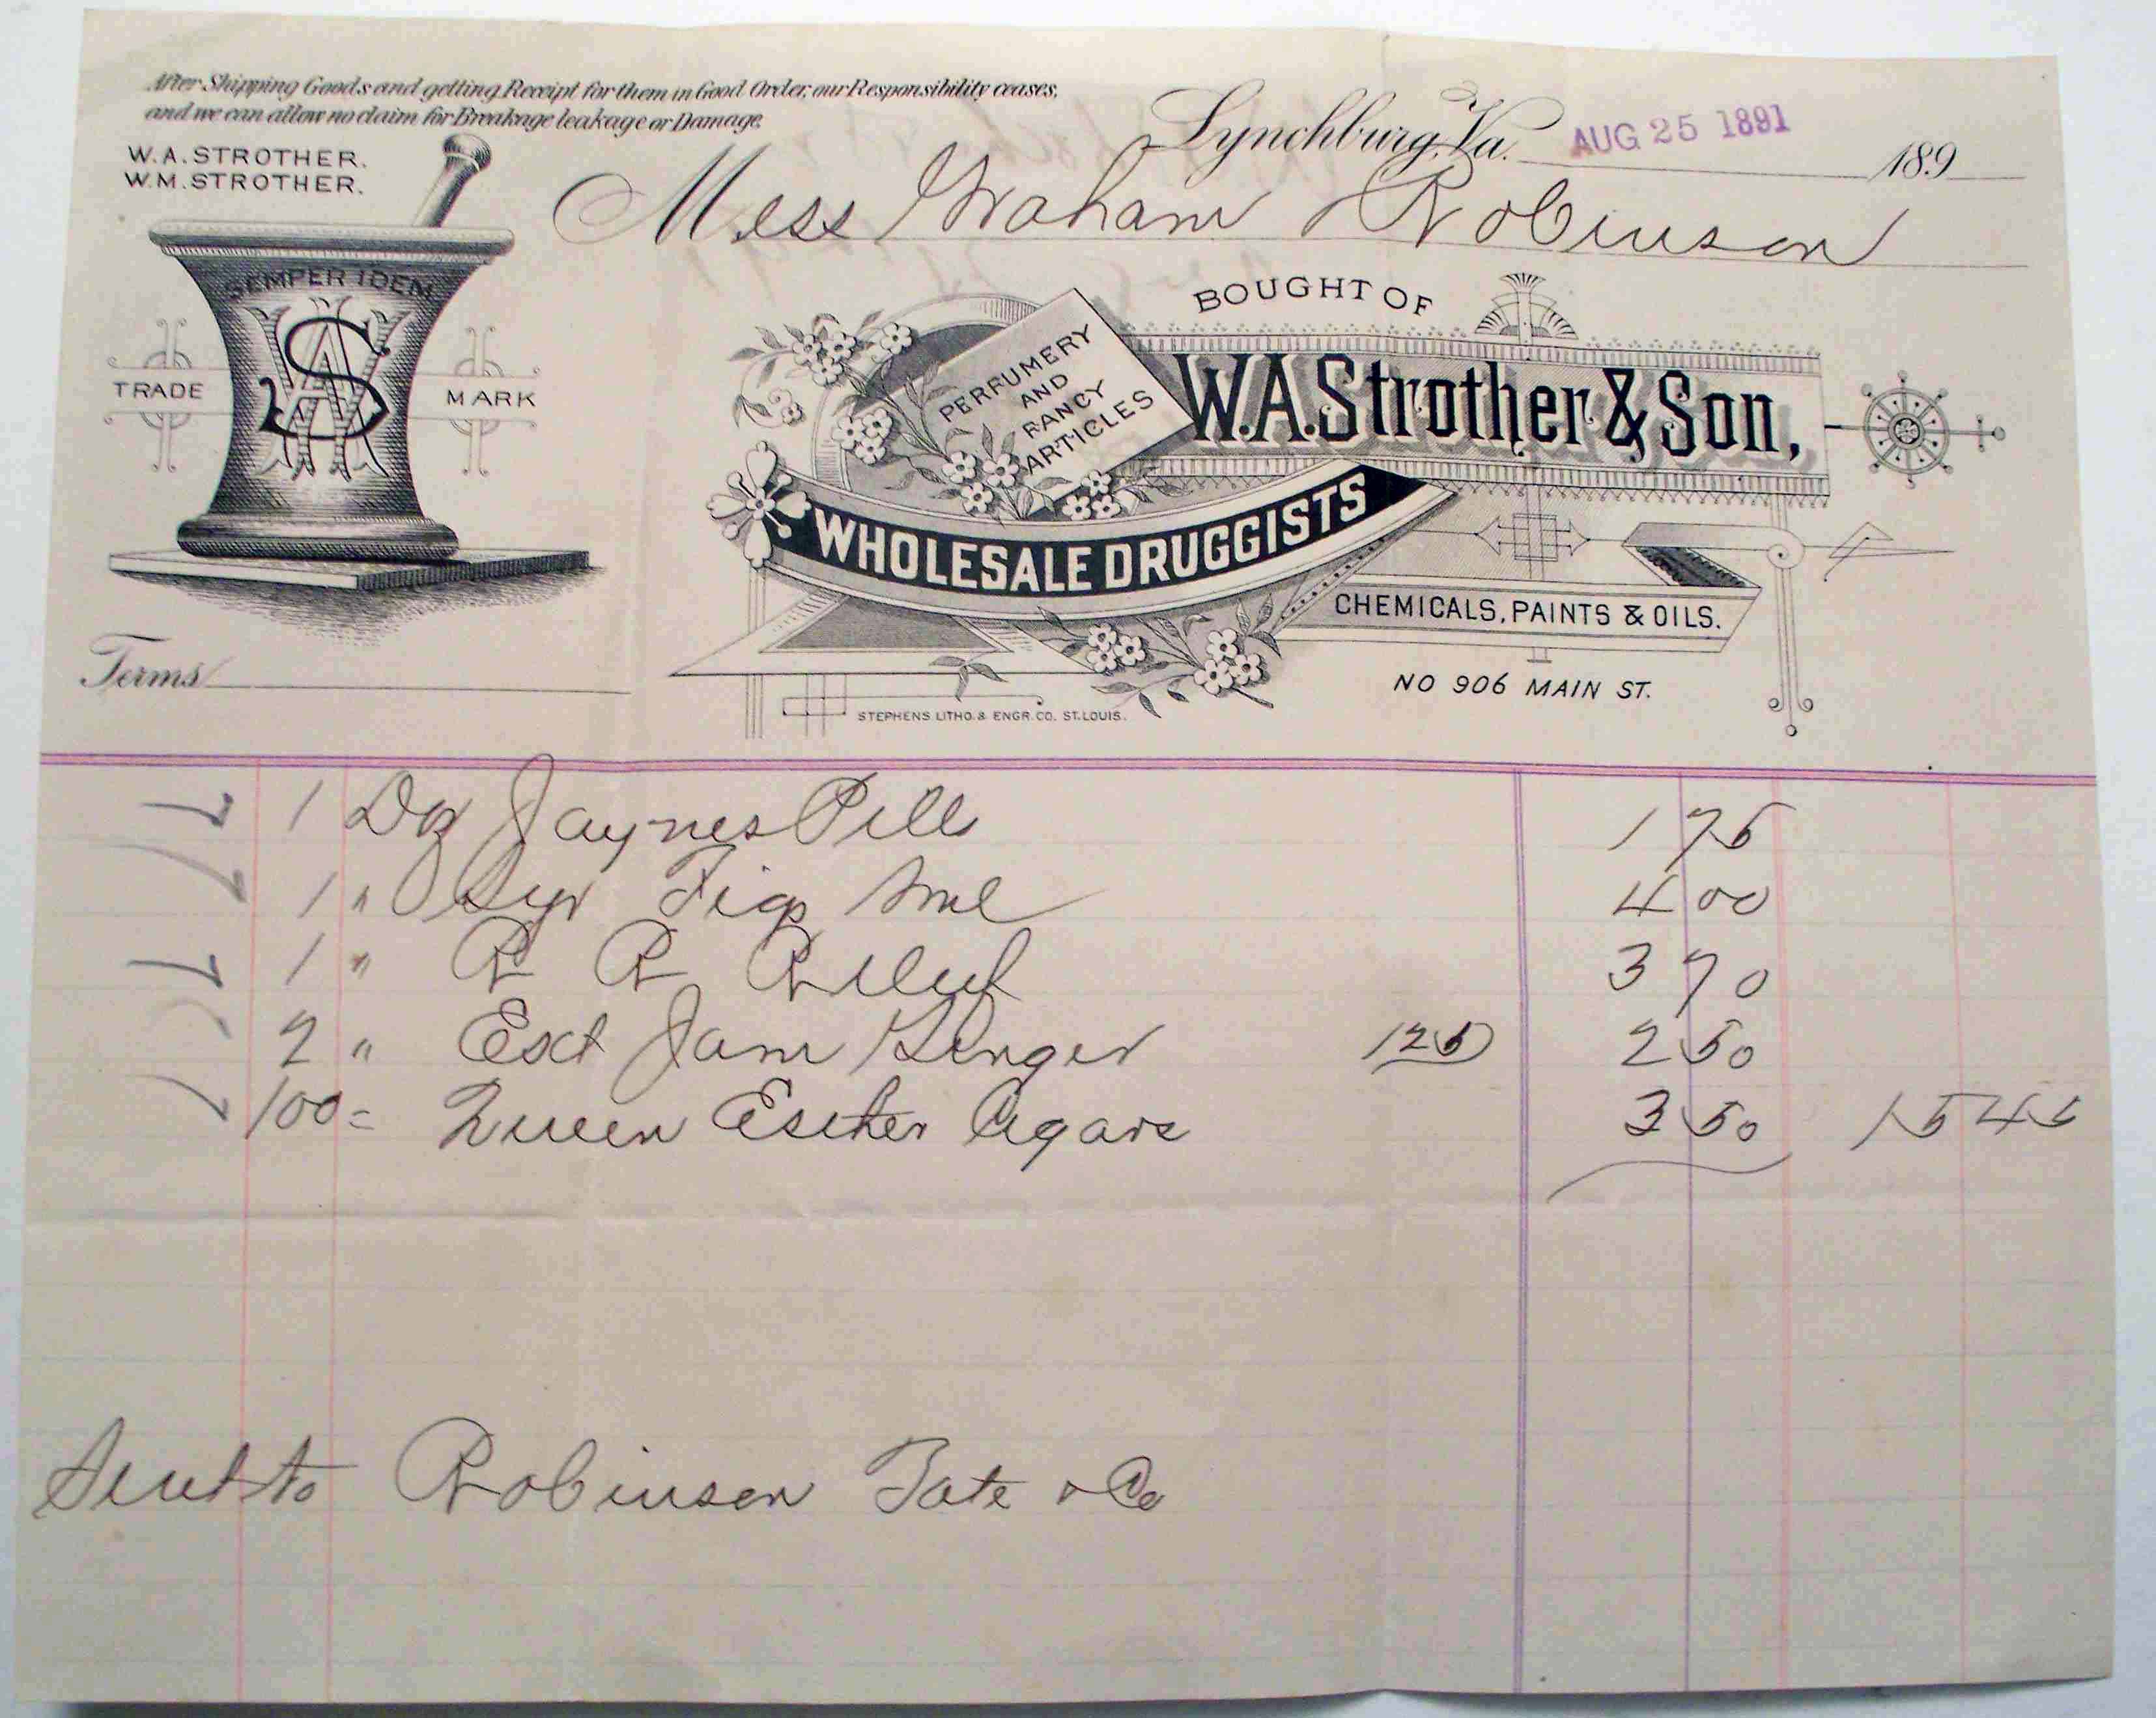 After Shipping Goods and getting Receipt for them in Good Order, our Responsibility ceases,
and we can allow no claim for Breakage leakage or Damage.
W.A. STROTHER.
W.M. STROTHER.
Lynchburg, Va. AUG 25 1891 189
Mess Graham & Robinson
SEMPER IDEM
WAS
TRADE MARK
BOUGHT OF
PERFUMERY
AND
FANCY
ARTICLES
W.A. Strother & Son,
WHOLESALE DRUGGISTS
CHEMICALS, PAINTS & OILS.
NO 906 MAIN ST.
Terms
STEPHENS LITHO. & ENGR. CO. ST. LOUIS.
1 Doz Jaynes Pills 1 75
1 " Syr Figs Sml 4 00
1 " R R Relief 3 70
2 " Ext Jam Ginger 125 2 50
100 = Queen Esther Cigars 3 50 15 45
Sent to Robinson Tate & Co